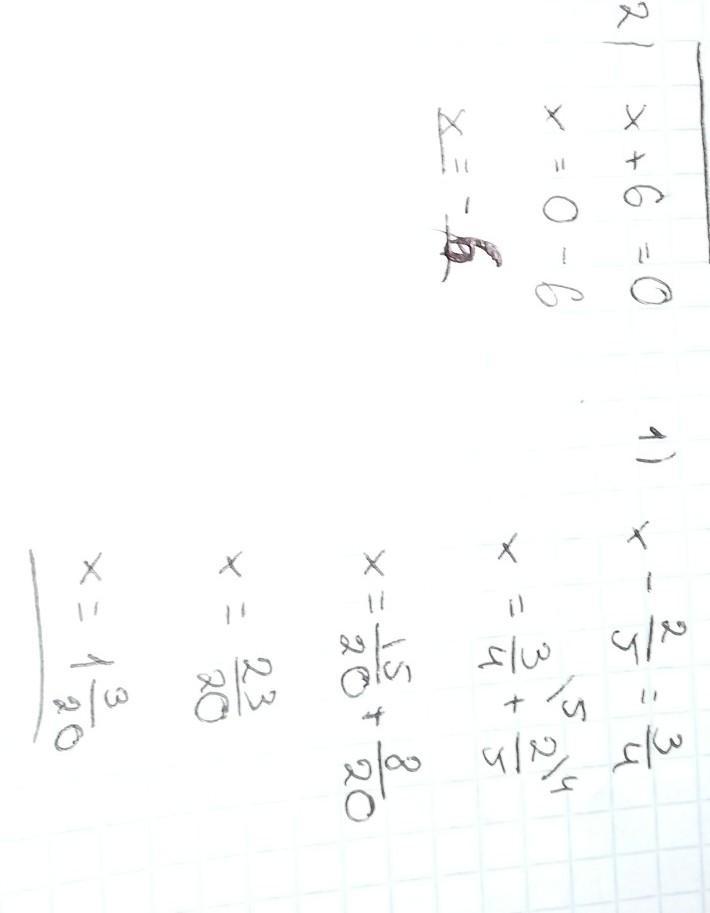 2)
x + 6 = 0
x = 0 - 6
x = - 6
1)
x - 2/5 = 3/4
x = 3/4 \5 + 2/5 \4
x = 15/20 + 8/20
x = 23/20
x = 1 3/20